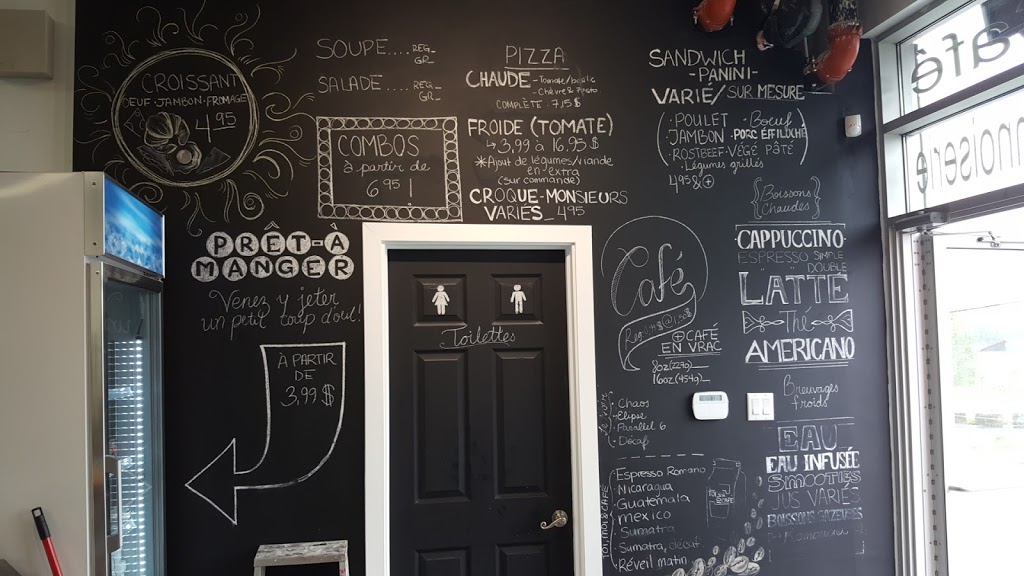 CROISSANT
OEUF·JAMBON·FROMAGE
4.95
SOUPE....REG_
GR_
SALADE....REG_
GR_
COMBOS
à partir de
6.95!
PIZZA
CHAUDE
COMPLÈTE - 7,15$
FROIDE (TOMATE)
↳ 3,99 à 16.95 $
*Ajout de légumes/viande
en extra
(sur commande)
CROQUE-MONSIEURS
VARIÉS 4.95
SANDWICH
-PANINI-
VARIÉ/SUR MESURE
·POULET ·Boeuf
JAMBON ·PORC EFFILOCHÉ
·ROSTBEEF·VÉGÉ PÂTÉ
Légumes grillés
4.95 & +
PRÊT-À
MANGER
Venez y jeter
un petit coup d'oeil!
À PARTIR
DE
3,99 $
Toilettes
Café
+CAFÉ
EN VRAC
8oz (227g)_
16oz (454g)_
·Chaos
·Elipse
·Parallel 6
·Décaf
TOI, MOI & CAFÉ
Espresso Romano
·Nicaragua
·Guatemala
·Mexico
·Sumatra
·Sumatra, décaf
·Réveil matin
{Boissons
Chaudes}
CAPPUCCINO
ESPRESSO SIMPLE
DOUBLE
LATTÉ
Thé
AMERICANO
Breuvages
froids
EAU
EAU INFUSÉE
SMOOTIES
JUS VARIÉS
BOISSONS GAZEUSES
café
nnoiserie